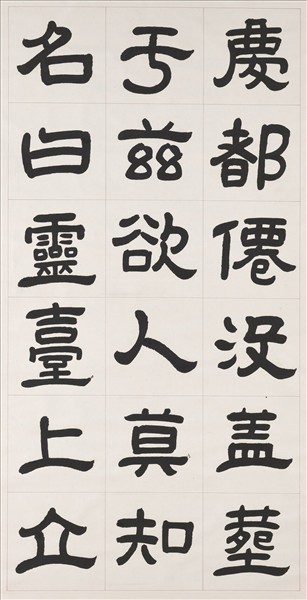 慶都僊没蓋葬
于兹欲人莫知
名曰靈臺上立